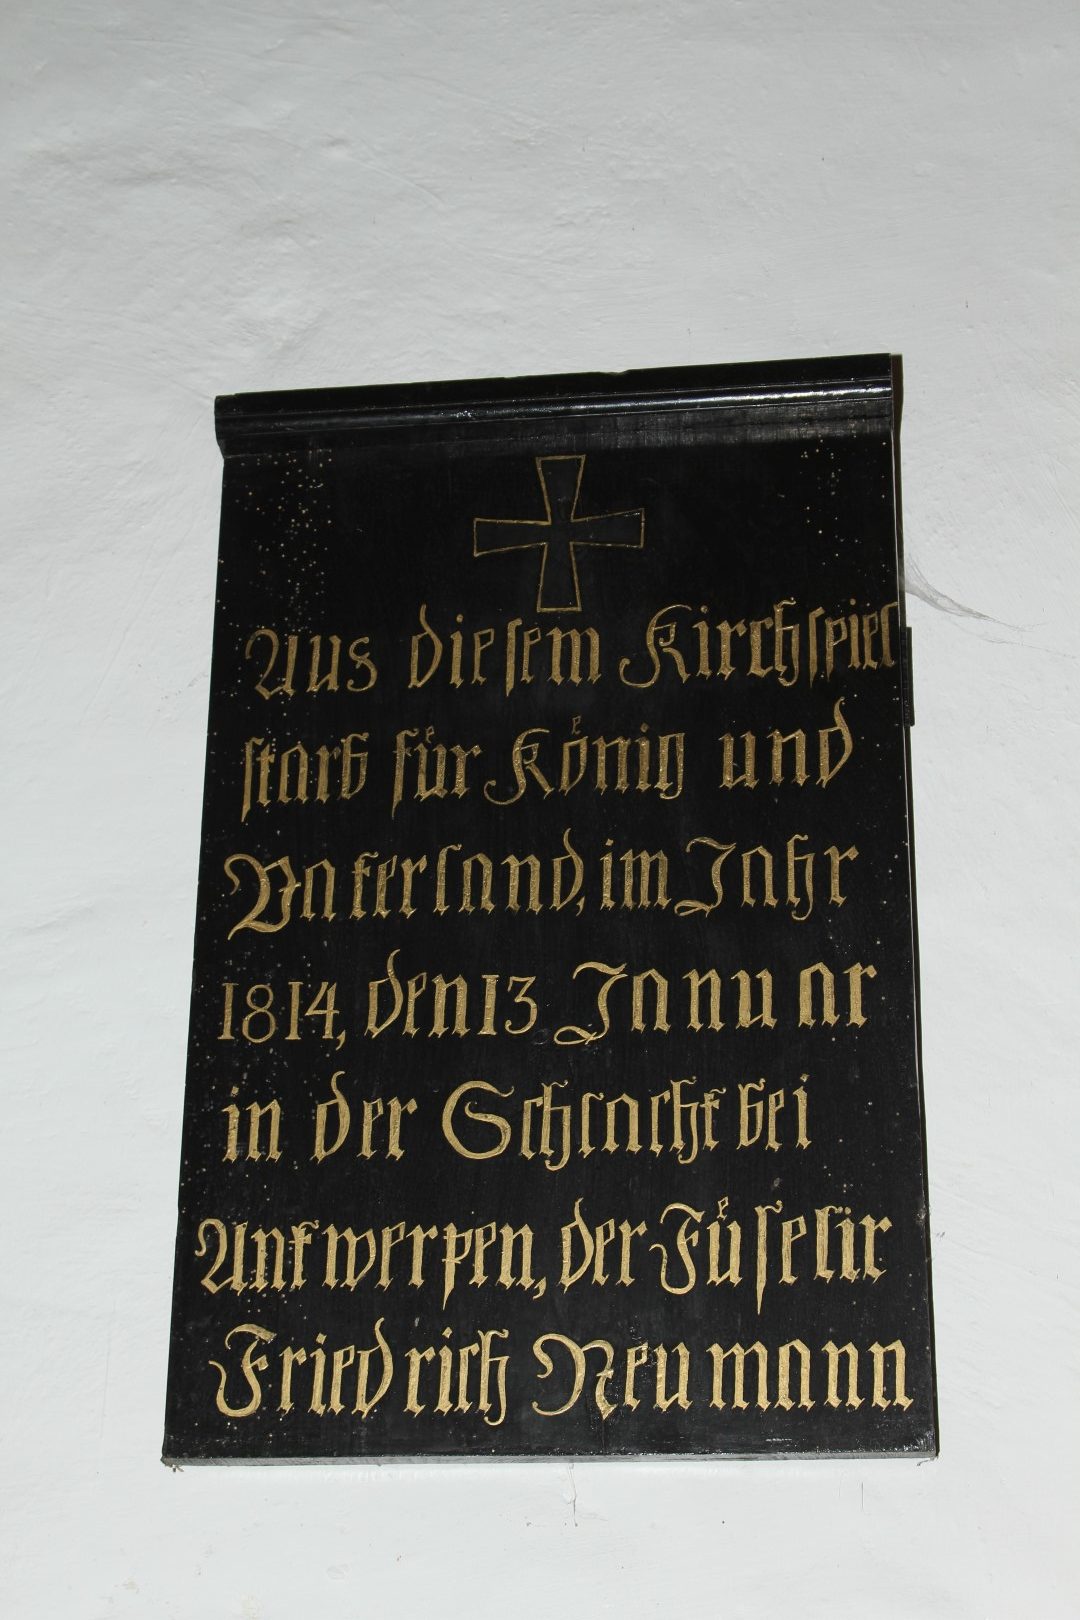 Aus dieſem Kirchſpiel
ſtarb fuͤr Koͤnig und
Vaterland, im Jahr
1814, den 13 Januar
in der Schlacht bei
Antwerpen, der Fuͤſelir
Friedrich Neumann